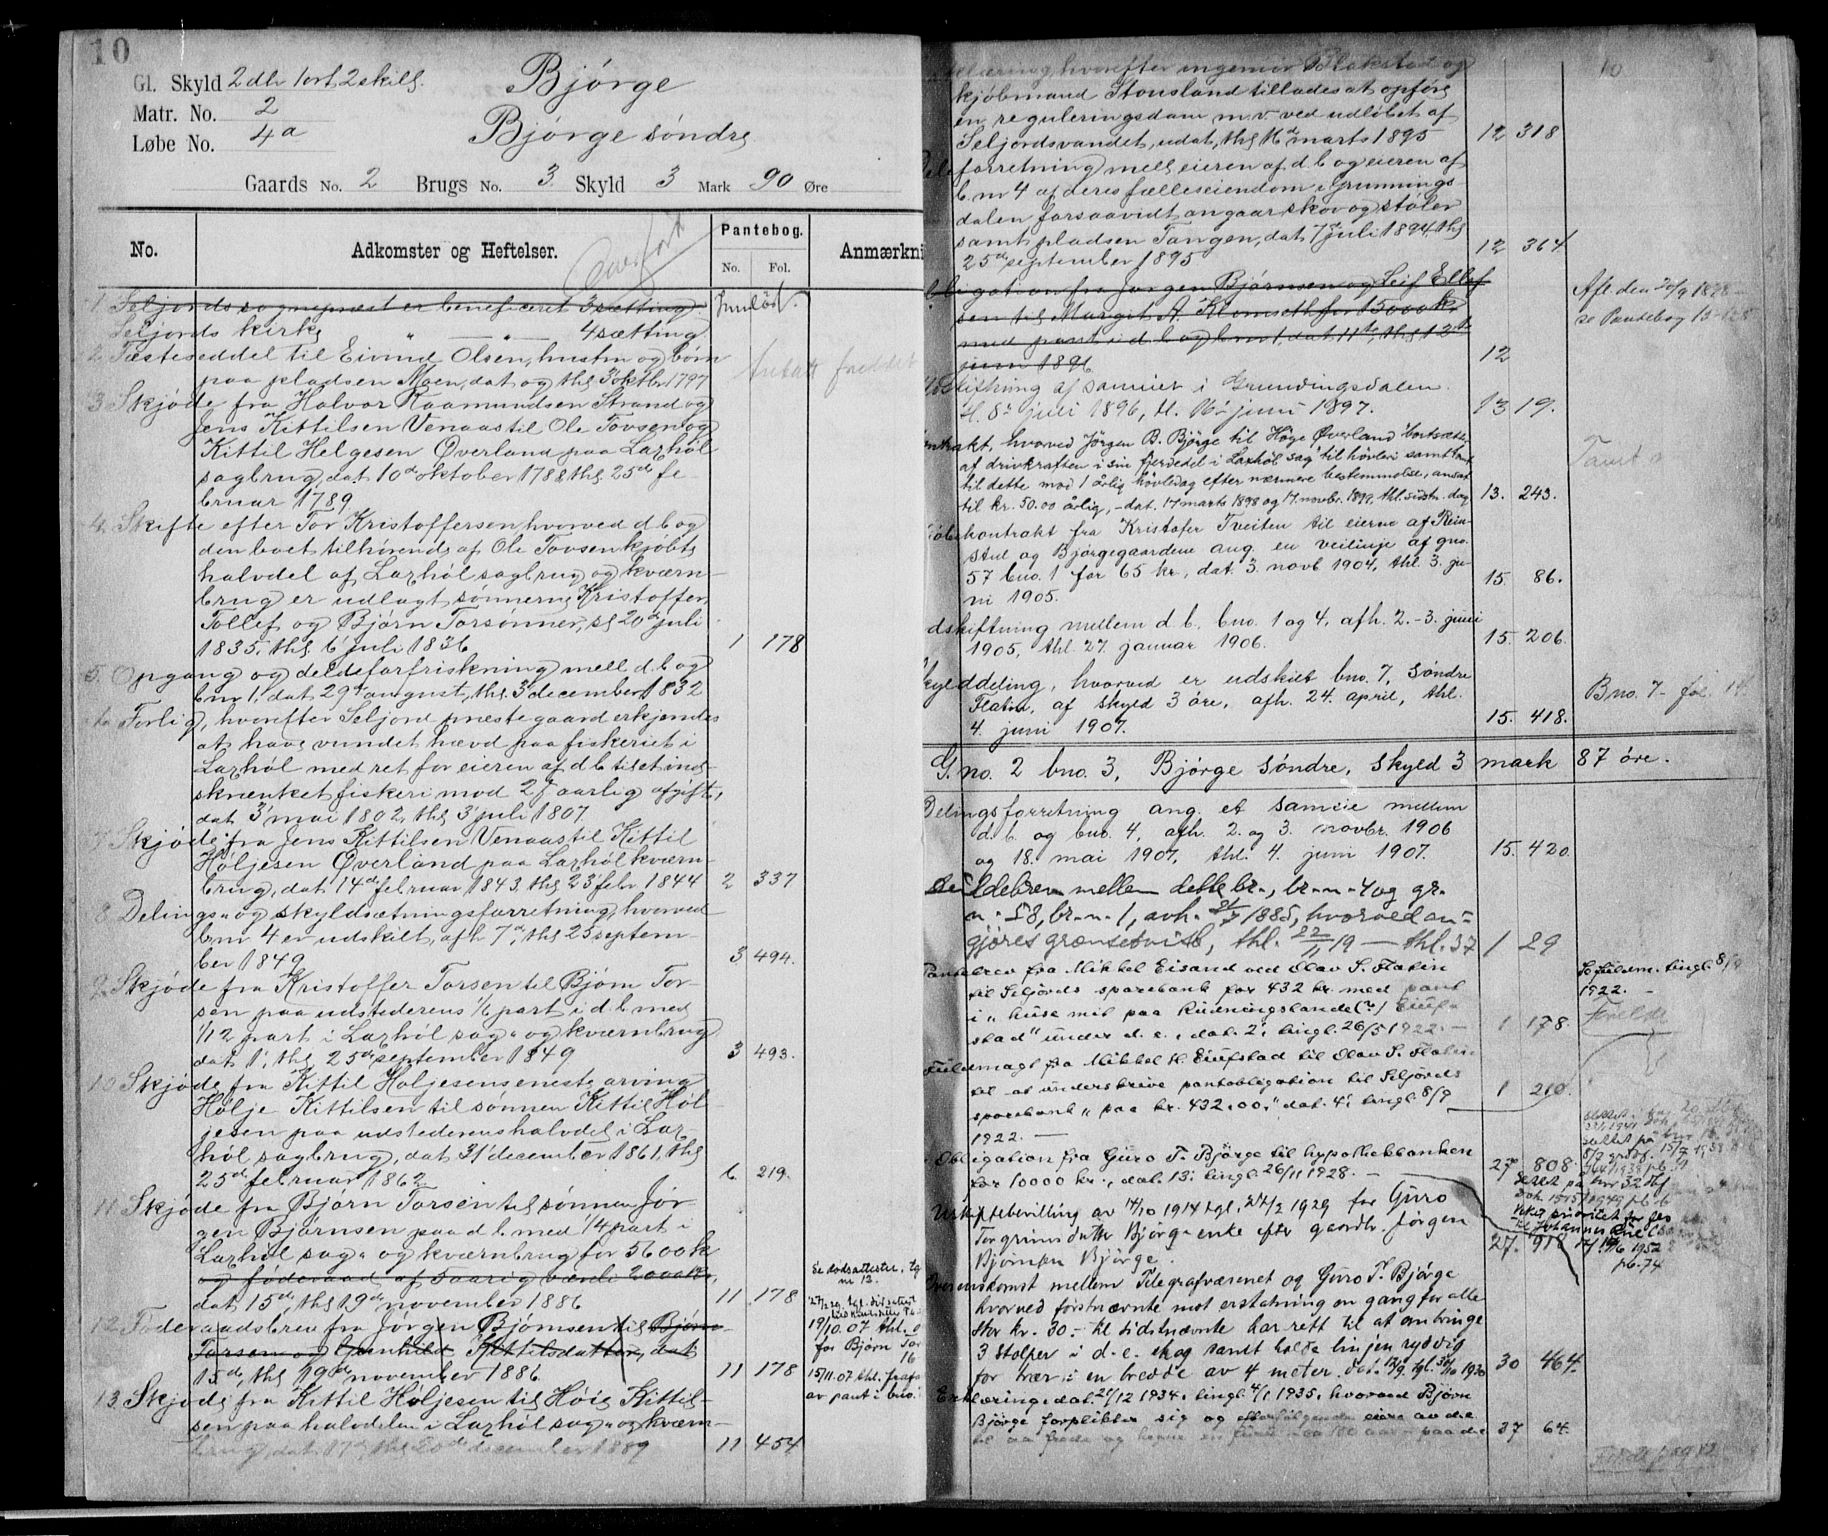 10
Gl. Skyld 2 dlr 1 ort 2 skill.
Bjørge
Matr. No. 2
Løbe No. 4a
Bjørge søndre
Gaards No. 2 Brugs No. 3. Skyld 3 Mark 90 Øre
No. Adkomster og Heftelser. Pantebog. No. Fol. Anmærkni
1 Seljords sognepræst er beneficeret 3 sætting Innløst.
Seljords kirke " — " — 4 sætting
2. Fæsteseddel til Eivind Olsen, hustru og børn
paa pladsen Moen, dat og thl 3' oktbr 1797
3 Skjøde fra Halvor Raamundsen Strand og
Jens Kittilsen Venaas til Ole Tovsen og
Kittil Helgesen Øverland paa Laxhøl
sagbrug, dat 10de oktober 1788 thl 25de fe-
bruar 1789
4. Skifte efter Tor Kristoffersen hvorved d.b. og
den boet tilhørende af Ole Tovsen kjøbte
halvdel af Laxhøl sagbrug og kværn-
brug er udlagt sønnerne Kristoffer,
Tollef og Bjørn Torsønner, sl 20de juli
1835, thl 6' juli 1836 1 178
5. Opgang og deldeforfriskning mell d.b og
bnr 1, dat 29de august, thl 3' december 1832
6 Forlig, hvorefter Seljord prestegaard erkjendes
at have vundet hævd paa fiskeriet i
Laxhøl med ret for eieren af d b til et ind-
skrænket fiskeri mod aarlig afgift,
dat 3' mai 1802, thl 3' juli 1807
7 Skjøde fra Jens Kittilsen Venaas til Kittil
Høljesen Øverland paa Laxhøl kværn-
brug, dat 14de februar 1843, thl 23' febr 1844 2 337
8 Delings- og skyldsætningsforretning, hvorved
bnr 4 er udskilt, afh 7de, thl 25 septem-
ber 1849 3 494.
9. Skjøde fra Kristoffer Torsen til Bjørn Tor-
sen paa udstederens 1/6 part i d.b med
1/12 part i Laxhøl sag- og kværnbrug
dat 1', thl 25de september 1849 3 493.
10 Skjøde fra Kittil Høljesens eneste arving
Hølje Kittilsen til sønnen Kittil Høl-
jesen paa udstederens halvdel i Lax-
høl sagbrug, dat 31' december 1861, thl
25de februar 1862 6. 219.
11 Skjøde fra Bjørn Torsen til sønnen Jør-
gen Bjørnsen paa d.b. med 1/4 part i
Laxhøl sag- og kværnbrug for 5600 kr
og føderaad af 5 aarig værdi 2000 kr,
dat 15de, thl 19de november 1886 11 178
12 Føderaadsbrev fra Jørgen Bjørnsen til Bjørn
Torsen og Gunhild Kittilsdatter, dat
15de, thl 19de november 1886 11 178
13 Skjøde fra Kittil Høljesen til Høie Kittil-
sen paa halvdelen i Laxhøl sag- og kværn-
brug, dat 17de, thl 20de december 1889 11 454
Se dødsattester, tg
nr 12.
19/10. 07 thl.
for Bjørn Tor
16
15/11. 07 thl. frafa
av pant i bno.
10
klæring, hvorefter ingeniør Blakstad og
kjøbmand Stousland tillades at opføre
en reguleringsdam m.v. ved udløbet af
Seljordsvandet, udat, thl 16de marts 1895 12 318
forretning mell eieren af d b og eieren af
b.nr 4 af deres fælleseiendom i Grunnings-
dalen forsaavidt angaar skov og støler
samt pladsen Tangen, dat 7de juli 1894, thl
25de september 1895 12 364
bligation fra Jørgen Bjørnsen og Leif Ellef
sen til Margit A. Klomseth for 15000 kr
med pant i d.b og bnr 1, dat 11te, thl 12te
juni 1896 12
Afl den 20/9 1898
se Pantebog 13-
tskiftning af sameiet i Grundingsdalen.
sl. 8de juli 1896, tl. 16de juni 1897. 13 19.
ntrakt, hvorved Jørgen B. Bjørge til Høge Øverland bortsætter
af drivkraften i sin fjerdedel i Laxhøl sag til høvleri samt
til dette mod 1 årlig høvledag efter nærmere bestemmelse, ansat
til kr. 50.00 årlig, - dat. 17 marts 1898 og 17. novbr. 1899, thl. sidstn. dag 13. 243.
kontrakt fra Kristofer Tveiten til eierne af Rein-
stul og Bjørgegaardene ang. en veilinje af gno.
57 bno. 1 for 65 kr., dat. 3. novb 1904, thl. 3. ju-
ni 1905. 15 86.
dskiftning mellem d. b. bno. 1 og 4, afh. 2.-3. juni
1905, thl. 27. januar 1906. 15. 206.
kylddeling, hvorved er udskilt bno. 7, Søndre
Flatin, af skyld 3 øre, afh. 24. april, thl.
4. juni 1907. 15. 418.
Bno. 7 - fol.
G.no. 2 bno. 3, Bjørge søndre, skyld 3 mark 87 øre.
Delingsforretning ang. et sameie mellem
d. b. og bno. 4, afh. 2. og 3. novbr. 1906
og 18. mai 1907, thl. 4. juni 1907. 15. 420.
Deildebrev mellem dette br., br.-n.-4 og gr.
n.- 58, br.-n.-1, avh. 1885, hvorved an-
gjøres grænsetvist, thl. 22/11 19 — thl. 37 1 29
Pantebrev fra Mikkel Eisand ved Olav S. Flatin
til Seljords sparebank for 432 kr. med pant
i "huse mit paa Rudningslande(?)
stad" under d. e., dat. 2', tingl. 26/5 1922. — 1 178.
Se fuldm. tingl. 8/9
1922. —
Fuldmagt fra Mikkel H. Eiufstad til Olav S. Flatin
til at underskrive pantobligation til Seljords
sparebank "paa kr. 432.00", dat. 4', tingl. 8/9 1 210.
1922. —
Obligation fra Guro T. Bjørge til hypothekbanken
for 10000 kr., dat. 13', tingl. 26/11 1928. — 27 808.
Uskiftebevilling av 14/10 1914 tgl. 27/2 1929 for Guro
Torgrimsdatter Bjørge enke efter gaardbr. Jørgen
Bjørnsen Bjørge. 27. 918
Overenskomst mellem Telegrafvæsenet og Guro T. Bjørge
hvorved førstnævnte mot erstatning en gang for alle
stor kr. 30.- til sidstnævnte har rett til at anbringe
3 stolper i d.e. skog samt holde linjen ryddig
for trær i en bredde av 4 meter. dat. 12/9, tgl. 1930 30 464.
Erklæring dat. 27/12 1934, tingl. 4/1 1935, hvorved Bjørn
Bjørge forplikter sig og efterfølgende eiere av d.e
til aa frede og hegne en paa d.e 37 64.